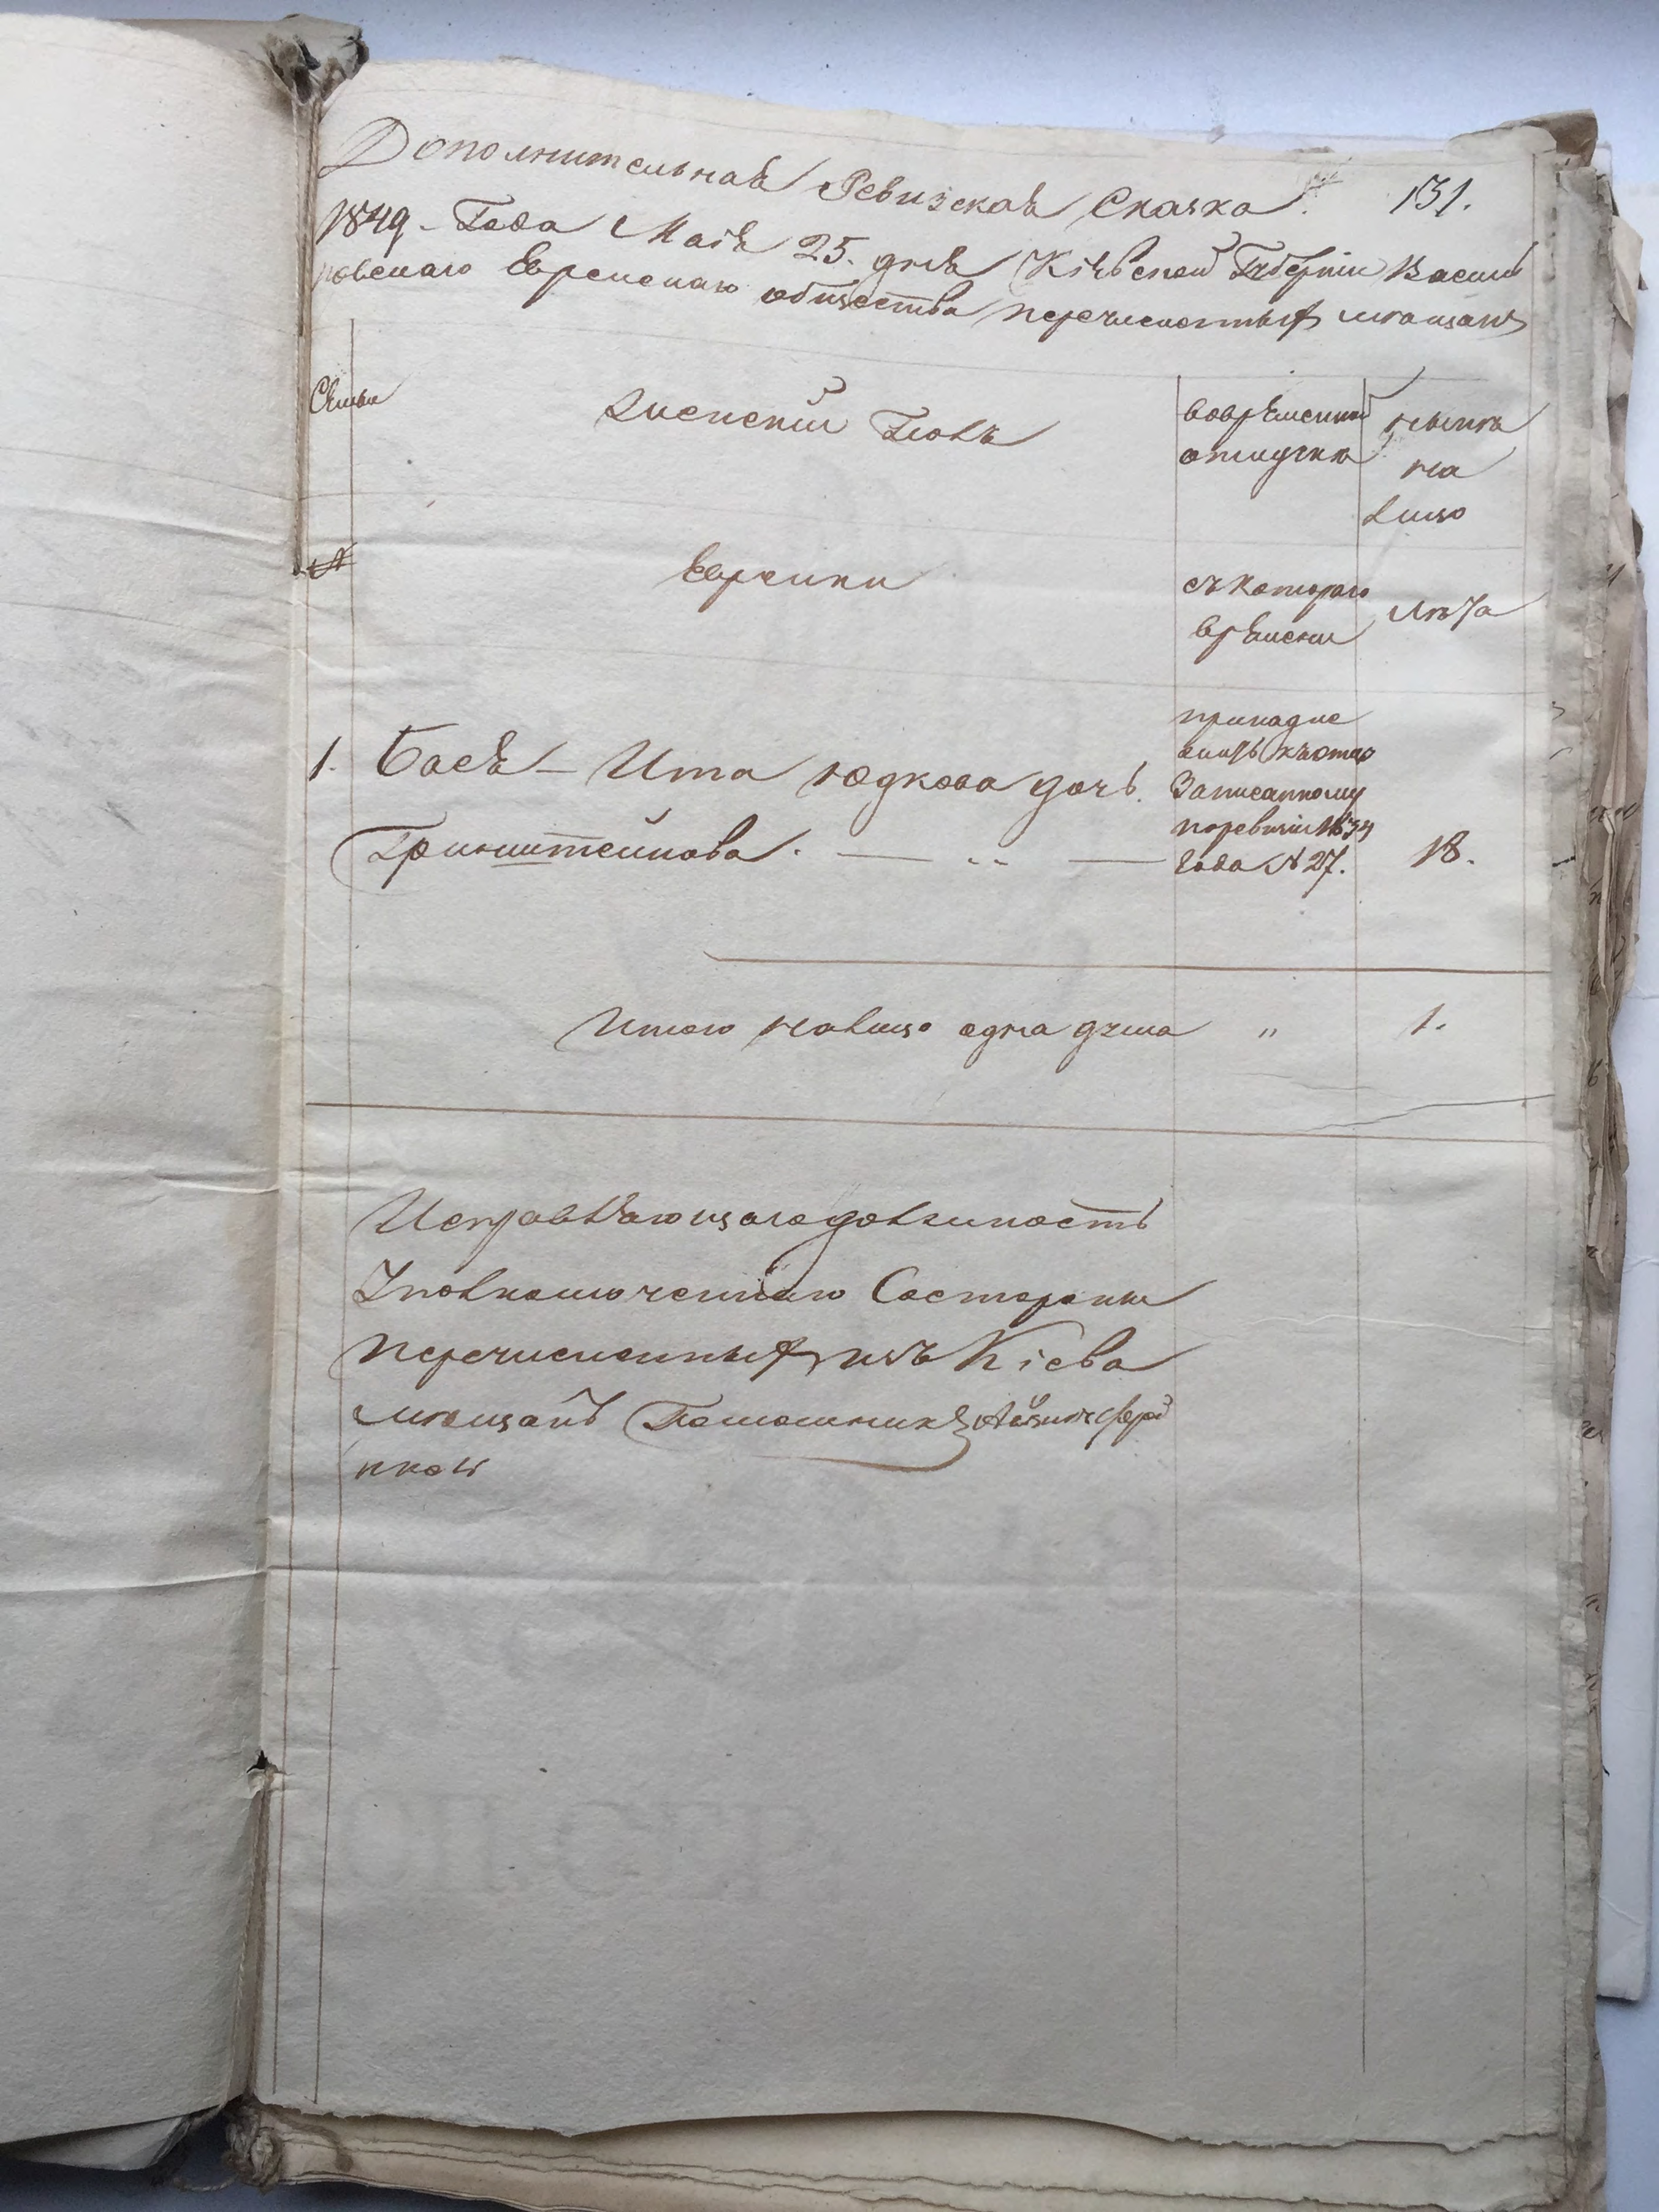 Дополнительная Ревизская Сказка. 131.
1849 - Года Маія 25. дня Кіевской Губерніи Василь
ковскаго Еврейскаго общества перечисленныхъ мѣщанъ
Семьи
Женскій Полъ
вовременной
отлучкѣ
нынѣ
на
лицо
№
Еврейки
съ котораго
времени
лѣта
1. Бася - Ита Юдкова дочь.
Гринштейнова. — „ —
Записанному
поревизіи 1834
Года № 27.
18.
Итого налицо одна душа „ 1.
Исправляющаго должность
Уполномоченнаго Состороны
перечисленныхъ изъ Кіева
мѣщанъ